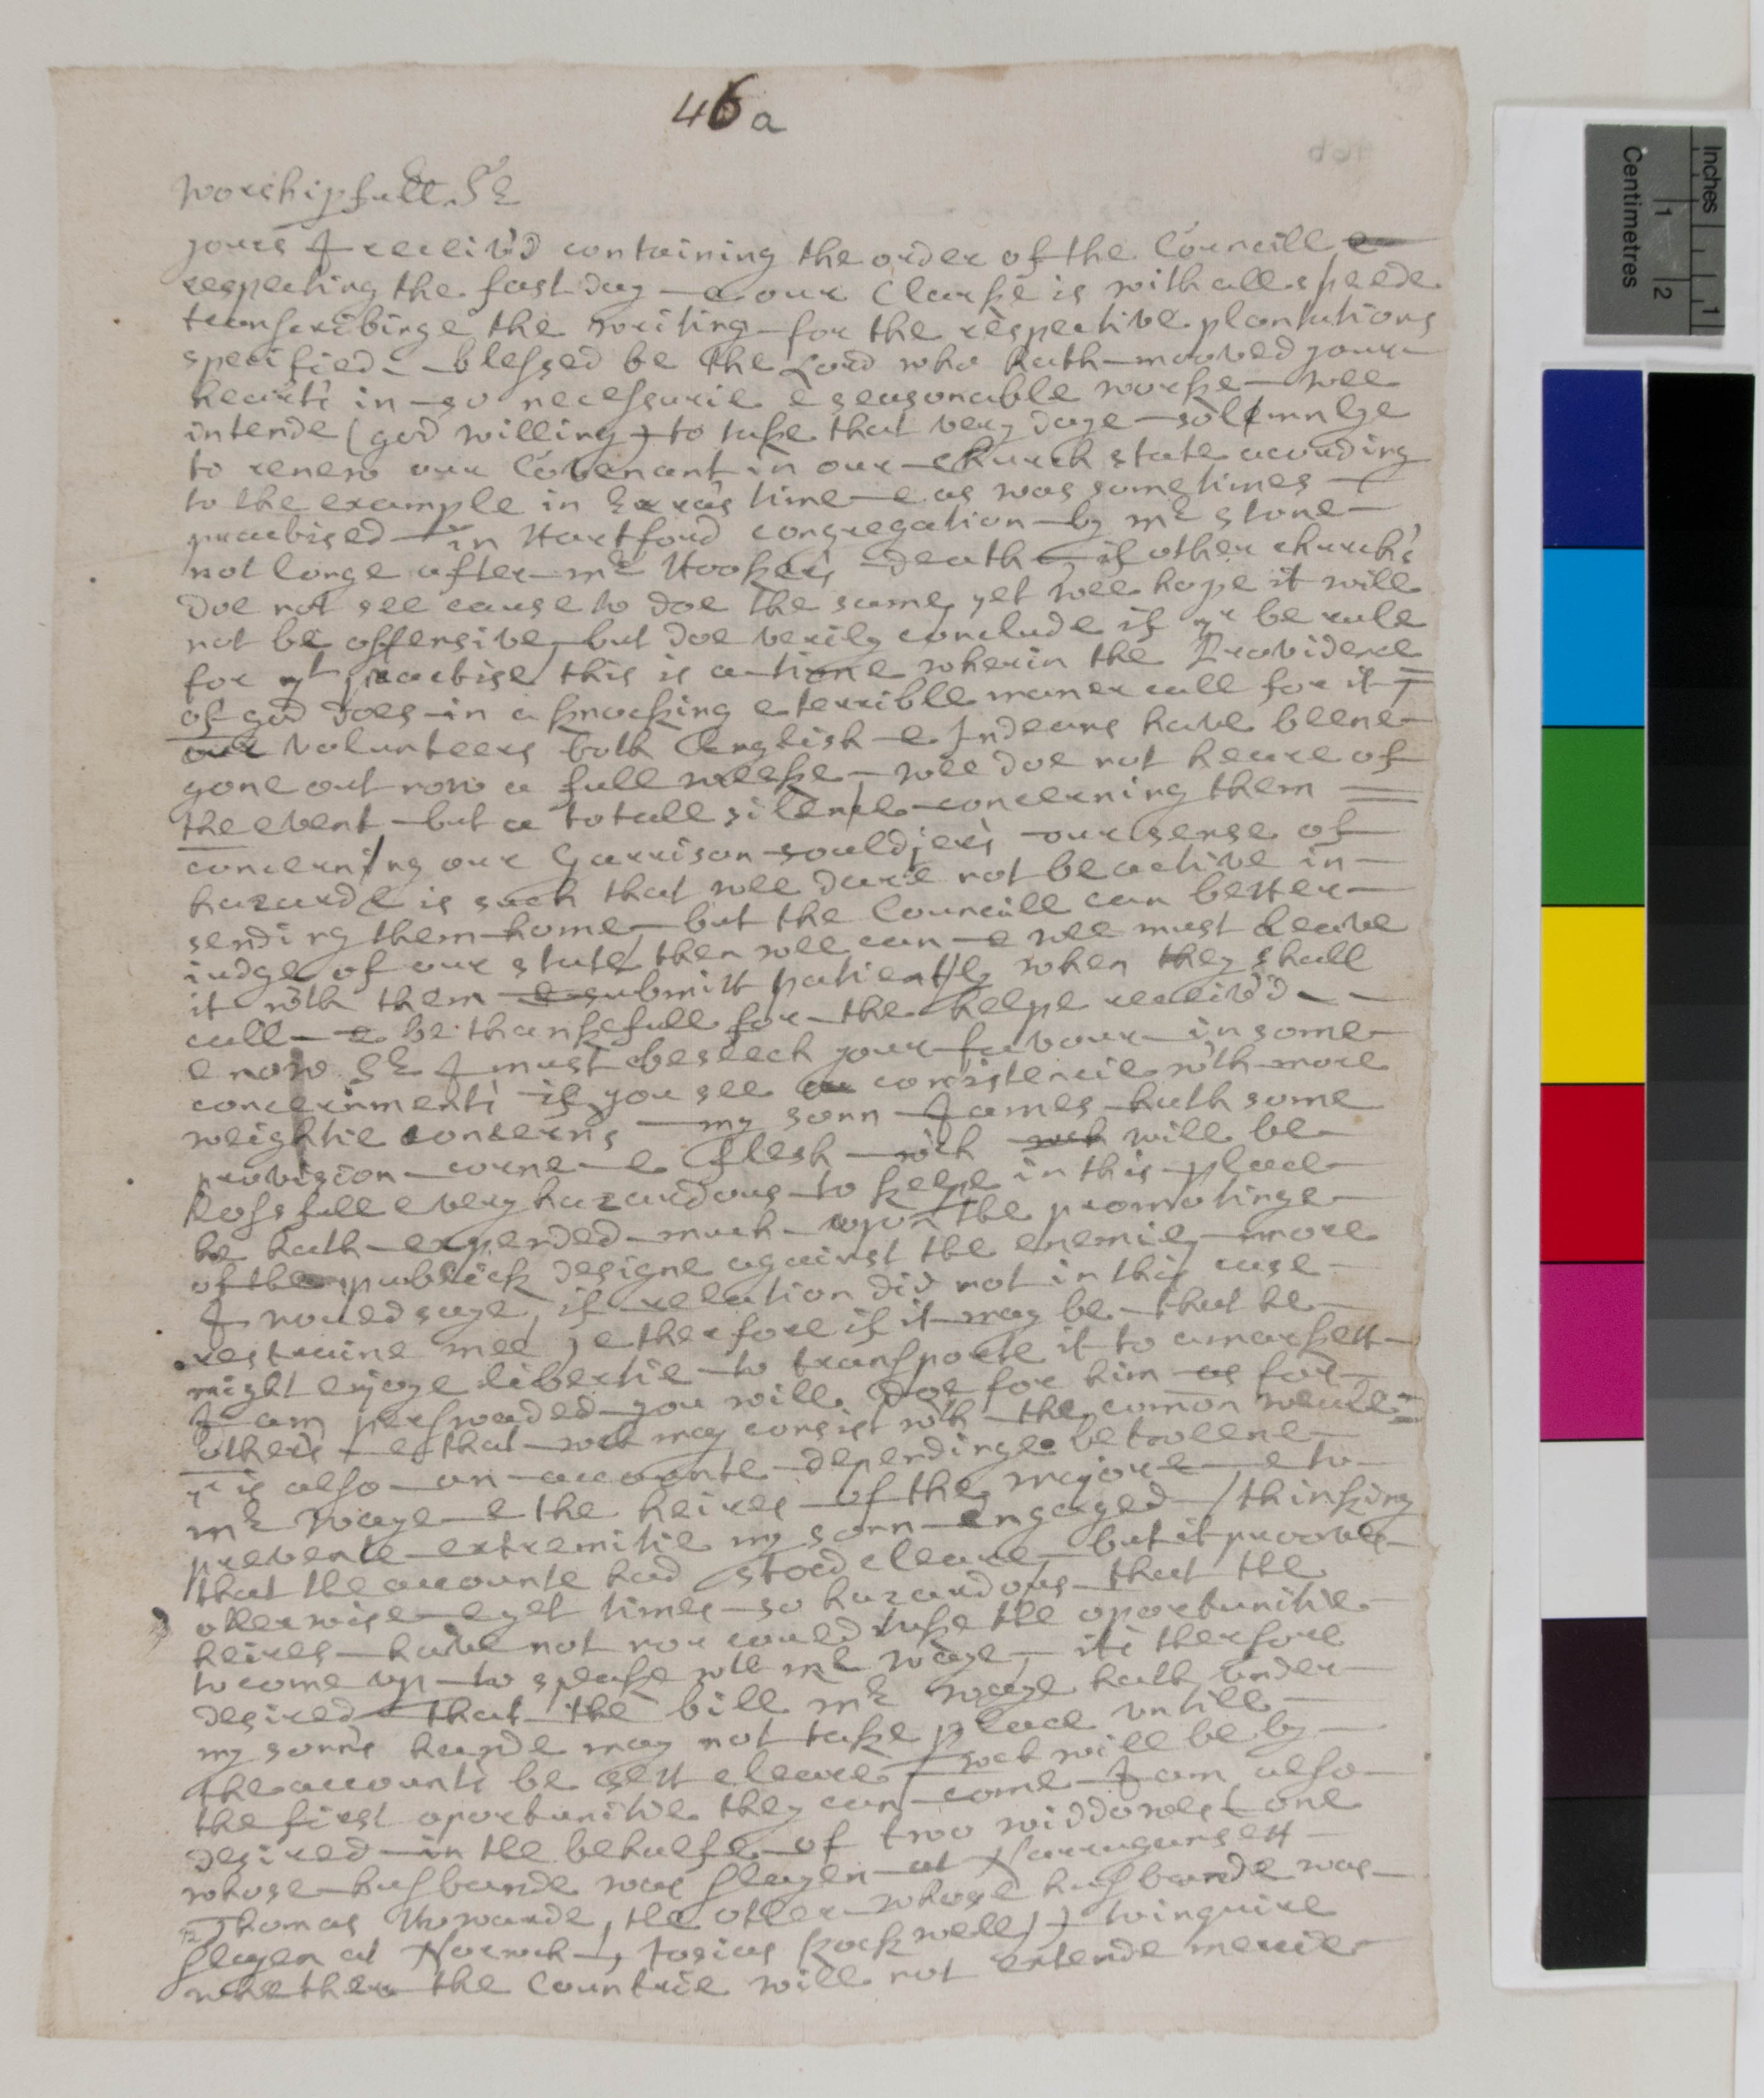 46a
worshipfull Sr
yours I receiv'd containing the order of the Councill e
respecting the fast day e our Clarke is with all speede
transcribinge the writing for the respective plantations
specified blessed be the Lord who hath mooved your
hearts in so necessarie e seasonable worke wee
intende (god willing) to take that very daye solemnlye
to renew our Covenant in our church state according
to the example in Ezra's time e as was sometimes
practised in Hartford congregation by mr Stone
not longe after mr Hooker's death if other church's
doe not see cause to doe the same, yet wee hope it will
not be offensive, but doe verily conclude if yr be rule
for yt practise this is a time wherin the Providence
of god does in a knocking e terrible maner call for it
our volunteers both English e Indeans have beene
gone out now a full weeke wee doe not heare of
the event but a totall silence concerning them
concerning our Garrison souldjers our sense of
hazarde is such that wee dare not be active in
sending them home, but the Councill can better
iudge of our state then wee can e wee must leave
it with them e submitt patiently when they shall
call e be thankefull for the helpe receiv'd
e now Sr I must beseech your favour in some
concernments if you see consistencie with more
weightie concerns my sonn James hath some
provision corne e flesh wch wch will be
lossfull e very hazardous to keepe in this place
he hath expended much upon the promotinge
of the publick designe against the enemie, more
I would saye, if relation did not in this case
restraine mee, e therefore if it may be that he
might enjoye libertie to transporte it to a markett
I am perswaded you will doe for him as for
others e that wch may consist wth the comon weale
yr is also an accounte dependinge betweene
mr Waye e the heires of the majore e to
prevente extremitie my sonn engaged, thinking
that the accounte had stood cleare, but it prooves
otherwise e yet times so hazardous that the
heires have not nor could take the oportunitie
to come up to speake wth mr Waye, its therfore
desired that the bill mr Waye hath under
my sonn's hande may not take place untill
the accounts be sett cleare wch will be by
the first oportunitie they can come I am also
desired in the behalfe of two widdowes (one
whose husbande was slayen at Narragansett
Thomas Howarde, the other whose husbande was
slayen at Norwich, Josias Rockwell) to inquire
whether the Countrie will not extende mercie